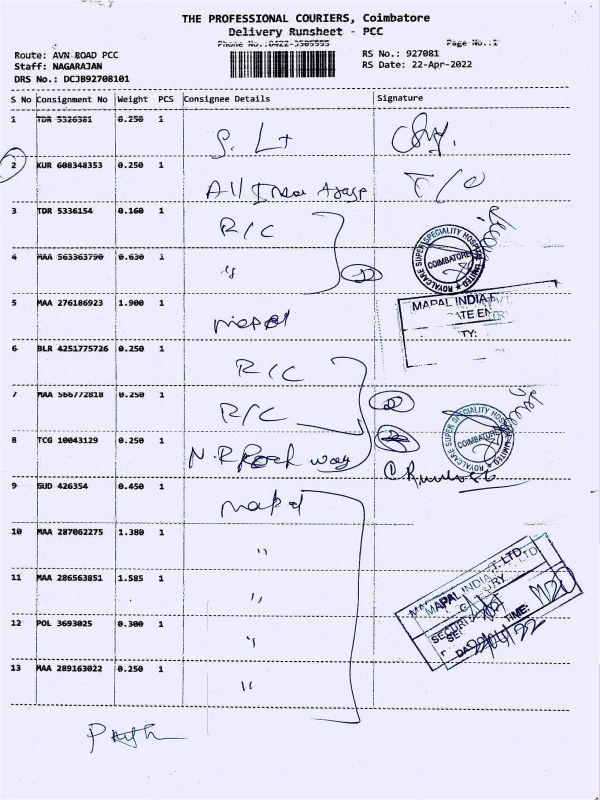 THE PROFESSIONAL COURIERS, Coimbatore
Delivery Runsheet - PCC
Phone No.:0422-3505555 Page No.:1
Route: AVN ROAD PCC RS No.: 927081
Staff: NAGARAJAN RS Date: 22-Apr-2022
DRS No.: DCJB92708101
S No Consignment No Weight PCS Consignee Details Signature
1 TDR 5326381 0.250 1 S. Lt
2 KUR 608348353 0.250 1 All T/O
3 TDR 5336154 0.160 1 R/C
4 MAA 563363790 0.630 1 "
ROYALCARE SUPER SPECIALITY HOSPITAL LIMITED
COIMBATORE
5 MAA 276186923 1.900 1 mapal
MAPAL INDIA
6 BLR 4251775726 0.250 1 R/C
7 MAA 566772818 0.250 1 R/C
ROYALCARE SUPER SPECIALITY HOSPITAL LIMITED
COIMBATORE
8 TCG 10043129 0.250 1 N.R way
9 GUD 426354 0.450 1 mapal
10 MAA 287062275 1.380 1 "
11 MAA 286563851 1.585 1 "
12 POL 3693025 0.300 1 "
13 MAA 289163022 0.250 1 "
MAPAL INDIA T-LTD
SECURITY
TIME: